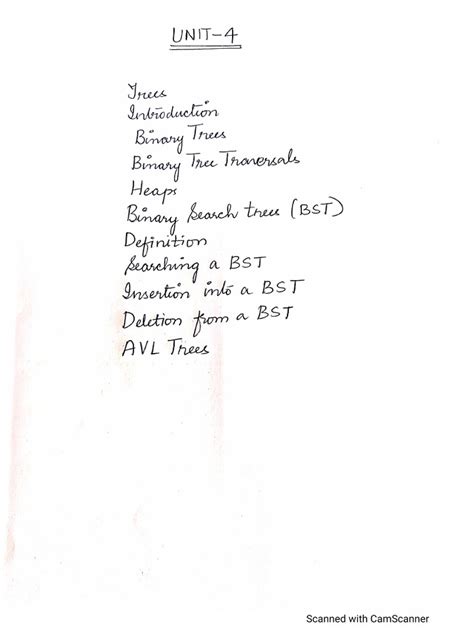 UNIT-4
Trees
Introduction
Binary Trees
Binary Tree Traversals
Heaps
Binary Search trees (BST)
Definition
Searching a BST
Insertion into a BST
Deletion from a BST
AVL Trees
Scanned with CamScanner